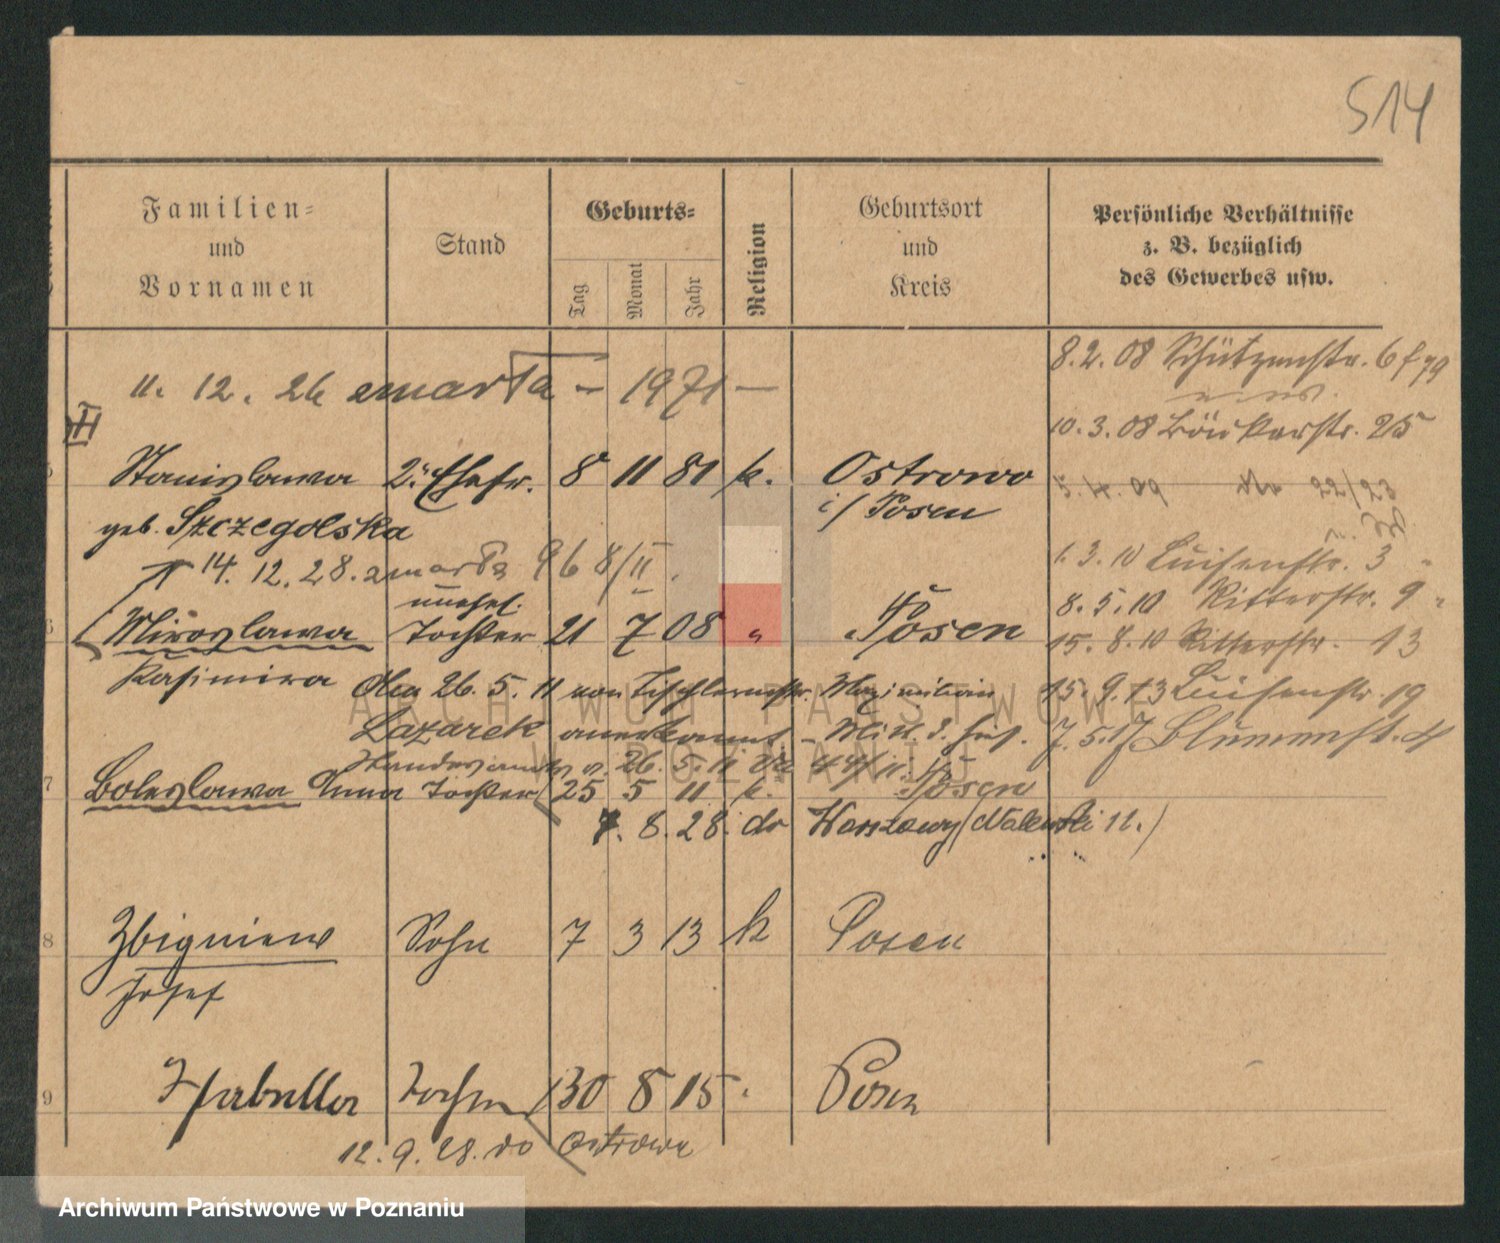 514
Familien-
und
Vornamen
Stand
Geburts-
Tag
Monat
Jahr
Religion
Geburtsort
und
Kreis
Persönliche Verhältnisse
z. B. bezüglich
des Gewerbes usw.
8.2.08 Schützenstr. 6
11. 12. 26 zmarła – 1971 –
10.3.08 Bäckerstr. 25
II
Stanislawa 2. Ehefr. 8 11 81 k. Ostrowo
i/ Posen
5.4.09 22/23
geb. Szczegolska
14. 12. 28. zmarła 968/II.
1.3.10 Luisenstr. 3
unehel.
8.5.10 Ritterstr. 9
Miroslawa Tochter 21 7 08 " Posen
15.8.10 Ritterstr. 13
Kasimira
26.5.11 von Maximilian
15.9.13 Luisenstr. 19
Lazarek anerkannt
7.5.17 Blumenstr. 4
Standesamts v. 26.5.11
7 Boleslawa Anna Tochter 25 5 11 k. Posen
7. 8. 28. do Warszawy (Nalewki 12.)
8 Zbigniew Sohn 7 3 13 k Posen
Josef
9 Isabella Tochter 30 8 15 Posen
12. 9. 28. do Ostrowa
ARCHIWUM PAŃSTWOWE
W POZNANIU
Archiwum Państwowe w Poznaniu